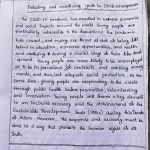 Protecting and mobilizing youth in COVID-19 responses
The COVID-19 pandemic has resulted in extreme economic
and social impacts around the world. Young people are
particularly vulnerable to the disruptions the pandemic
has caused, and many are now at risk of being left
behind in education, economic opportunities, and health
and wellbeing during a crucial stage of their life
development. Young people are more likely to be unemployed
or to be in precarious job contracts and working arrange-
ments, and thus, lack adequate social protection. At the
same time, young people are responding to the crisis
through public health promotion, volunteering
and innovation. Young people will form a key element
in an inclusive recovery and the achievement of the
Sustainable Development Goals (SDGs) during this Decade
of Action. However, the response and recovery must be
done in a way that protects the human rights of all
youth.